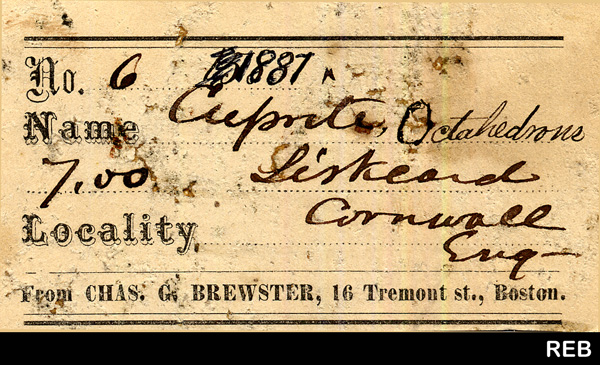 No. 6 1887
Name Cuprite, Octahedrons
7,00 Liskeard
Locality Cornwall
Eng-
From CHAS. G. BREWSTER, 16 Tremont st., Boston.
REB